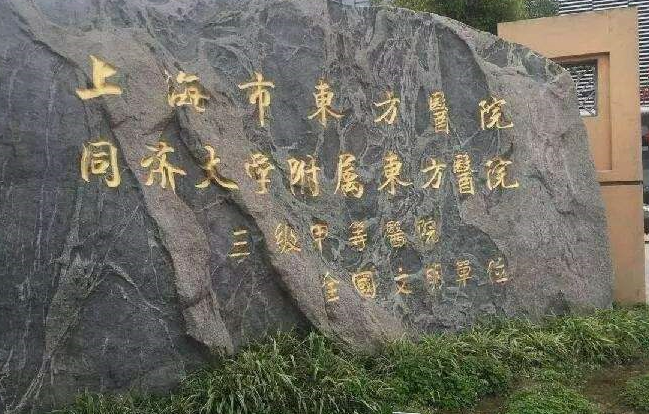 上海市東方醫院
同济大学附属東方醫院
三级甲等醫院
全國文明單位